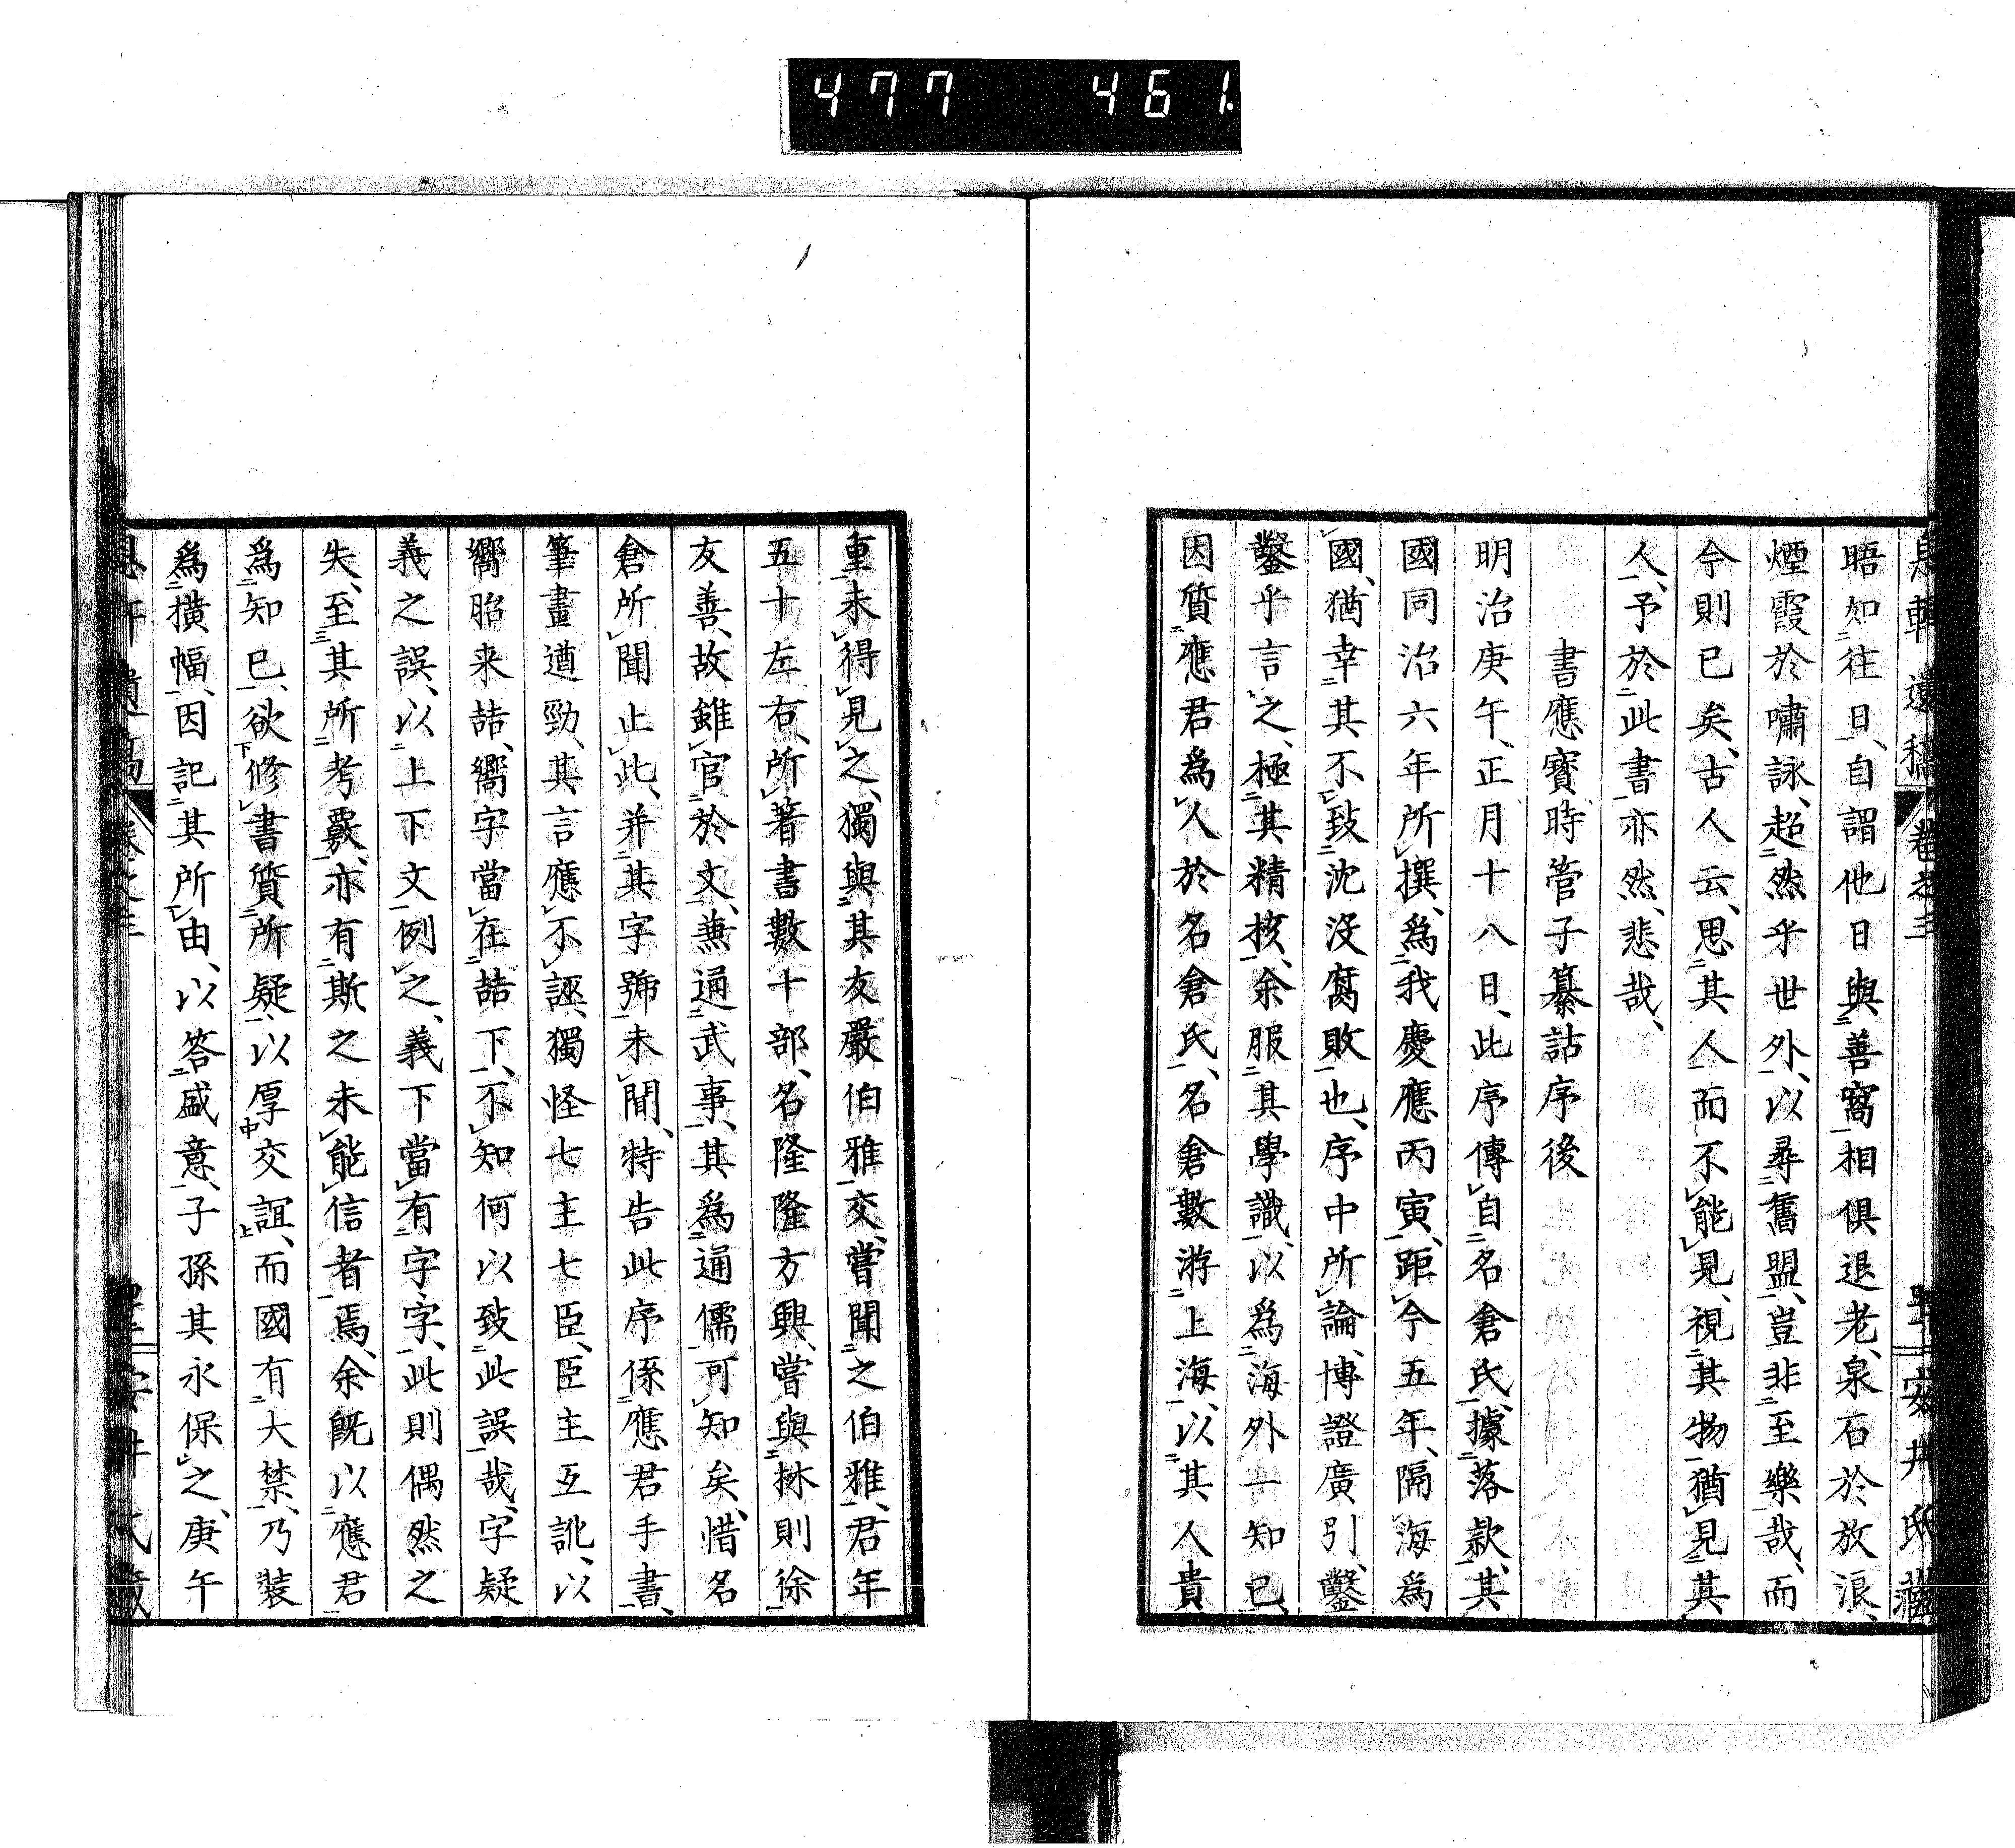 477 461
息軒遺稿 卷之三 安井氏藏
晤如往日、自謂他日與善窩相俱退老、泉石於放浪、
煙霞於嘯詠、超然乎世外、以尋舊盟、豈非至樂哉、而
今則已矣、古人云、思其人而不能見、視其物猶見其
人、予於此書亦然、悲哉、
書應寶時管子纂詁序後
明治庚午、正月十八日、此序傳自名倉氏、據落款、其
國同治六年所撰、為我慶應丙寅、距今五年、隔海為
國、猶幸其不致沈沒腐敗也、序中所論、博證廣引、鑿
鑿乎言之、極其精核、余服其學識、以為海外一知已、
因質應君為人於名倉氏、名倉數游上海、以其人貴
重、未得見之、獨與其友嚴伯雅交、嘗聞之伯雅、君年
五十左右、所著書數十部、名隆隆方興、嘗與林則徐
友善、故雖官於文、兼通武事、其為通儒可知矣、惜名
倉所聞止此、并其字號未聞、特告此序係應君手書、
筆畫遒勁、其言應不誣、獨怪七主七臣、臣主互訛、以
嚮貽来喆、嚮字當在喆下、不知何以致此誤哉、字疑
義之誤、以上下文例之、義下當有字字、此則偶然之
失、至其所考覈、亦有斯之未能信者焉、余旣以應君
為知已、欲修書質所疑、以厚交誼、而國有大禁、乃裝
為橫幅、因記其所由、以答盛意、子孫其永保之、庚午